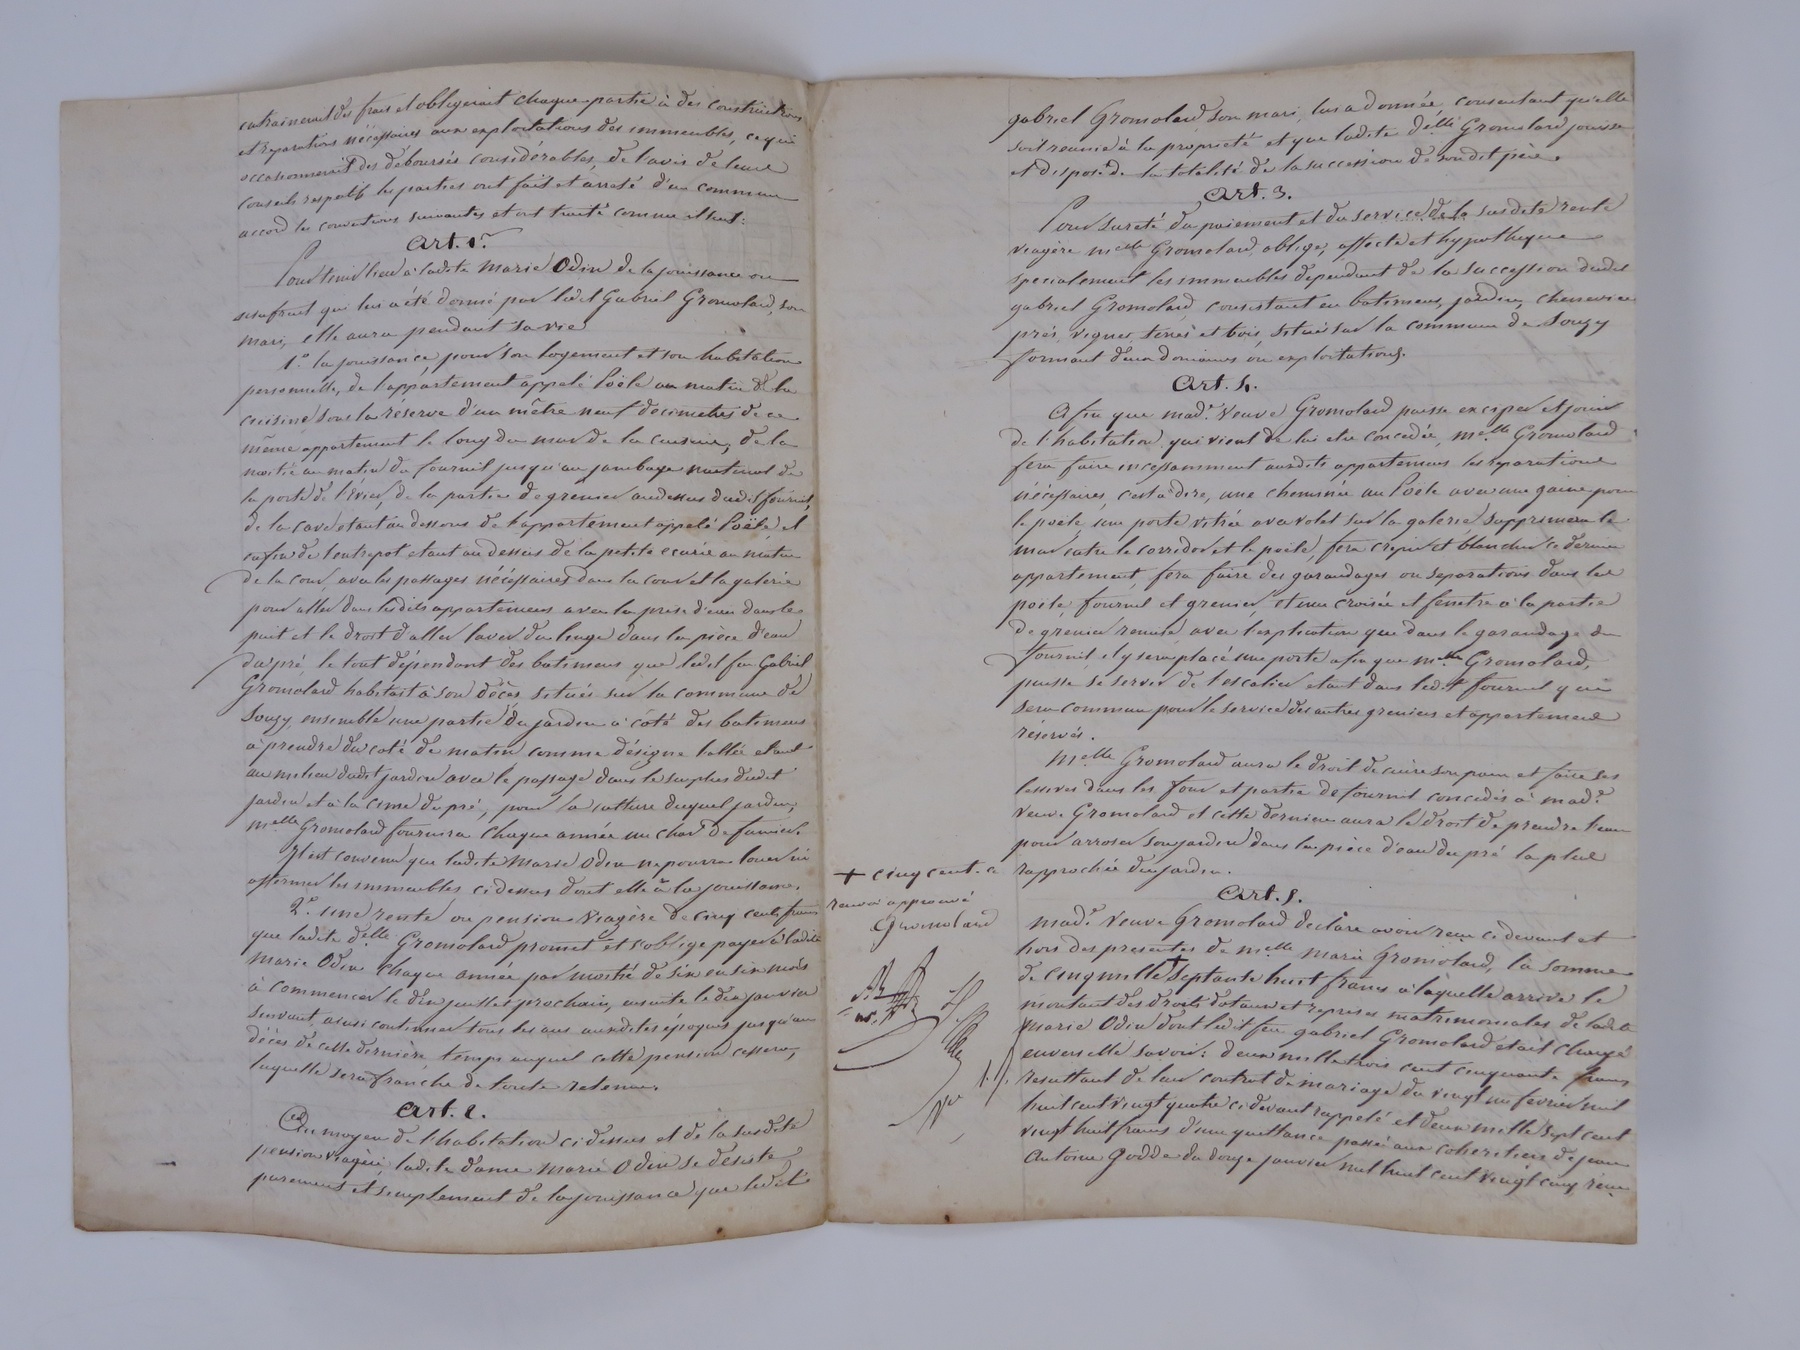 entrainerait des frais et obligerait chaque partie à des constructions
et reparations nécessaires aux exploitations des immeubles, ce qui
occasionnerait des déboursés considérables, de l'avis de leurs
conseils respectifs les parties ont fait et arreté d'un commun
accord les conventions suivantes et ont traité comme il suit:
Art. 1er
Pour tenir lieu à ladite Marie Odin de la jouissance ou
usufruit qui lui a été donné par ledit Gabriel Gromolard, son
mari, elle aura pendant sa vie
1° la jouissance, pour son logement et son habitation
personnelle, de l'appartement appelé Poële au matin de la
cuisine sous la réserve d'un mètre neuf decimetres de ce
même appartement le long du mur de la cuisine, de la
moitié au matin du fournil jusqu'au jambage de
la porte de l'évier, de la partie de grenier au dessus dudit fournil,
de la cave étant au dessous de l'appartement appelé Poële, et
enfin de l'entrepot etant au dessus de la petite ecurie au matin
de la cour, avec les passages nécessaires dans la cour et la galerie
pour aller dans lesdits appartemens avec la prise d'eau dans le
puit et le droit d'aller laver du linge dans la pièce d'eau
du pré, le tout dépendant des batimens que ledit feu Gabriel
Gromolard habitait à son décès, situés sur la commune de
Souzy, ensemble une partie du jardin à côté des batimens
à prendre du coté de matin comme désigne l'allée etant
au milieu dudit jardin avec le passage dans le surplus dudit
jardin et à la cime du pré, pour la culture duquel jardin,
Melle Gromolard fournira chaque année un char de fumier.
Il est convenu que ladite Marie Odin ne pourra louer ni
affermer les immeubles ci dessus dont elle a la jouissance.
2° une rente ou pension viagère de cinq cents francs
que ladite delle Gromolard promet et s'oblige payer à ladite
Marie Odin chaque année par moitié de six en six mois
à commencer le dix juillet prochain, ensuite le dix janvier
suivant, ainsi continuer tous les ans auxdites époques jusqu'au
décès de cette dernière, temps auquel cette pension cessera,
laquelle sera franche de toute retenue.
Art. 2.
Au moyen de l'habitation ci dessus et de la susdite
pension viagère, ladite dame Marie Odin se désiste
purement et simplement de la jouissance que ledit
gabriel Gromolard, son mari, lui a donnée, consentant qu'elle
soit reunie à la propriété et que ladite delle Gromolard jouisse
et dispose de la totalité de la succession de son dit père.
Art. 3.
Pour sureté du paiement et du service de la susdite rente
viagère melle Gromolard, oblige, affecte et hypothèque
specialement les immeubles dependant de la succession dudit
gabriel Gromolard consistant en batimens, jardin, chenevier
prés, vignes, terres et bois, situés sur la commune de Souzy
formant deux domaines ou exploitations.
Art. 4.
Afin que made veuve Gromolard puisse exciper et jouir
de l'habitation qui vient de lui etre concedée, melle Gromolard
fera faire incessamment auxdits appartemens les reparations
nécessaires, c'est à dire, une cheminée au Poële avec une gaine pour
le poële, une porte vitrée avec volet sur la galerie, supprimera le
mur entre le corridor et le poële, fera crepir et blanchir ce dernier
appartement, fera faire des garandages ou separations dans les
poële, fournil et grenier, et une croisée et fenetre à la partie
de grenier remise, avec l'explication que dans le garandage du
fournil, il y sera placé une porte afin que melle Gromolard,
puisse se servir de l'escalier etant dans ledit fournil qui
sera commun pour le service des autres greniers et appartemens
réservés.
Melle Gromolard aura le droit de cuire son pain et faire ses
lessives dans les four et partie de fournil concédés à made
veuve Gromolard et cette dernière aura le droit de prendre l'eau
pour arroser son jardin dans la pièce d'eau du pré la plus
rapprochée du jardin.
Art. 5.
Made veuve Gromolard déclare avoir reçu ci devant et
hors des presentes de melle Marie Gromolard, la somme
de cinq mille + septante huit francs à laquelle arrive le
montant des droits dotaux et reprises matrimoniales de ladite
Marie Odin dont ledit feu gabriel Gromolard etait chargé
envers elle savoir: deux mille trois cent cinquante francs
resultant de leur contrat de mariage du vingt un février mil
huit cent vingt quatre ci devant rappelé et deux mille sept cent
vingt huit francs d'une quittance passée aux cohéritiers de jean
Antoine Godde du douze janvier mil huit cent vingt cinq reçue
+ cinq cent. ce
renvoi approuvé
Gromolard